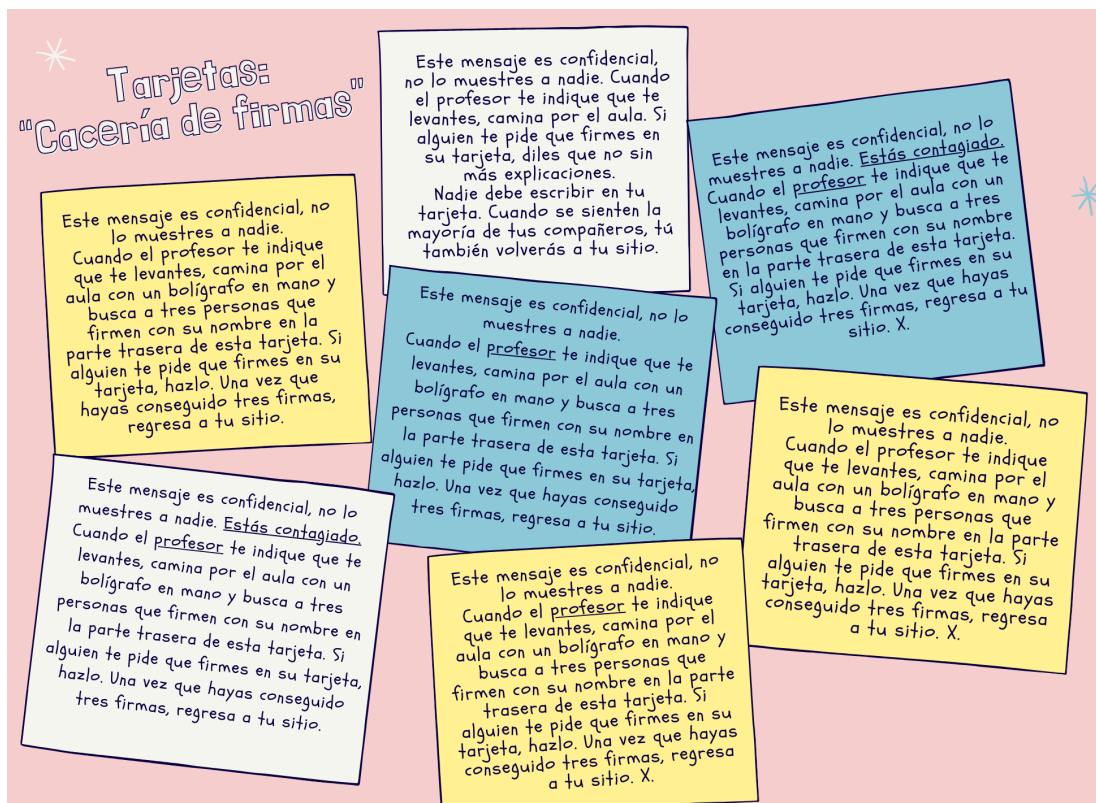 Tarjetas:
"Cacería de firmas"
Este mensaje es confidencial,
no lo muestres a nadie. Cuando
el profesor te indique que te
levantes, camina por el aula. Si
alguien te pide que firmes en
su tarjeta, diles que no sin
más explicaciones.
Nadie debe escribir en tu
tarjeta. Cuando se sienten la
mayoría de tus compañeros, tú
también volverás a tu sitio.
Este mensaje es confidencial, no lo
muestres a nadie. Estás contagiado.
Cuando el profesor te indique que te
levantes, camina por el aula con un
bolígrafo en mano y busca a tres
personas que firmen con su nombre
en la parte trasera de esta tarjeta.
Si alguien te pide que firmes en su
tarjeta, hazlo. Una vez que hayas
conseguido tres firmas, regresa a tu
sitio. X.
Este mensaje es confidencial, no
lo muestres a nadie.
Cuando el profesor te indique
que te levantes, camina por el
aula con un bolígrafo en mano y
busca a tres personas que
firmen con su nombre en la
parte trasera de esta tarjeta. Si
alguien te pide que firmes en su
tarjeta, hazlo. Una vez que
hayas conseguido tres firmas,
regresa a tu sitio.
Este mensaje es confidencial, no lo
muestres a nadie.
Cuando el profesor te indique que te
levantes, camina por el aula con un
bolígrafo en mano y busca a tres
personas que firmen con su nombre en
la parte trasera de esta tarjeta. Si
alguien te pide que firmes en su tarjeta,
hazlo. Una vez que hayas conseguido
tres firmas, regresa a tu sitio.
Este mensaje es confidencial, no
lo muestres a nadie.
Cuando el profesor te indique
que te levantes, camina por el
aula con un bolígrafo en mano y
busca a tres personas que
firmen con su nombre en la parte
trasera de esta tarjeta. Si
alguien te pide que firmes en su
tarjeta, hazlo. Una vez que hayas
conseguido tres firmas, regresa
a tu sitio. X.
Este mensaje es confidencial, no lo
muestres a nadie. Estás contagiado.
Cuando el profesor te indique que te
levantes, camina por el aula con un
bolígrafo en mano y busca a tres
personas que firmen con su nombre en
la parte trasera de esta tarjeta. Si
alguien te pide que firmes en su tarjeta,
hazlo. Una vez que hayas conseguido
tres firmas, regresa a tu sitio.
Este mensaje es confidencial, no
lo muestres a nadie.
Cuando el profesor te indique
que te levantes, camina por el
aula con un bolígrafo en mano y
busca a tres personas que
firmen con su nombre en la parte
trasera de esta tarjeta. Si
alguien te pide que firmes en su
tarjeta, hazlo. Una vez que hayas
conseguido tres firmas, regresa
a tu sitio. X.